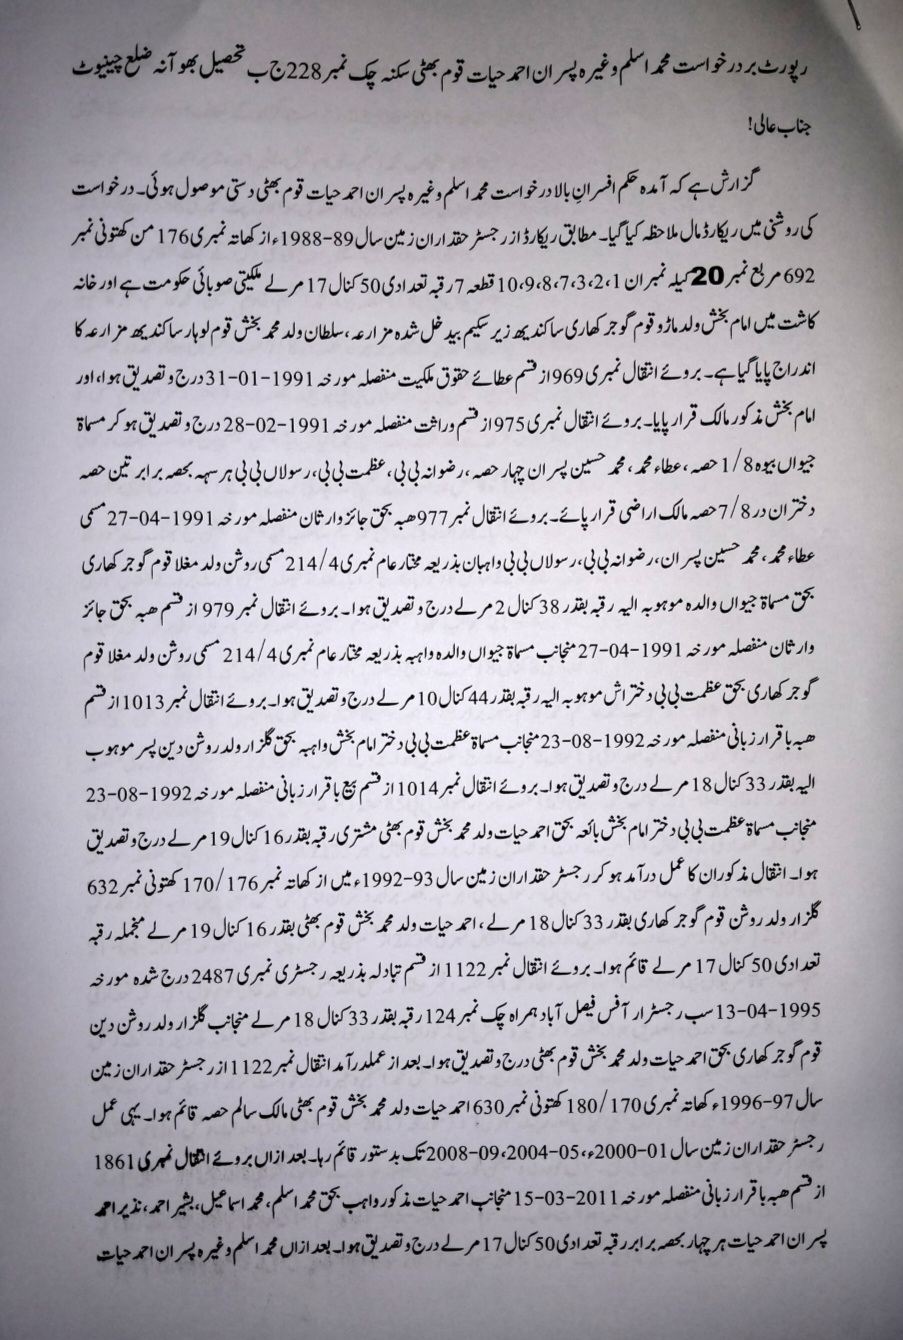 رپورٹ بر درخواست محمد اسلم وغیرہ پسران احمد حیات قوم بھٹی سکنہ چک نمبر 228 ج ب تحصیل بھوآنہ ضلع چینیوٹ
جناب عالی!
گزارش ہے کہ آمدہ حکم افسران بالا درخواست محمد اسلم وغیرہ پسران احمد حیات قوم بھٹی دستی موصول ہوئی۔ درخواست
کی روشنی میں ریکارڈ مال ملاحظہ کیا گیا۔ مطابق ریکارڈ از رجسٹر حقداران زمین سال 89-1988ء از کھاتہ نمبری 176 من کھتونی نمبر
692 مربع نمبر 20 کیلہ نمبران 1،2،3،7،8،9،10 قطعہ 7 رقبہ تعدادی 50 کنال 17 مرلے ملکیتی صوبائی حکومت ہے اور خانہ
کاشت میں امام بخش ولد ماڑو قوم گوجر کھاری ساکندیھ زیر سکیم بیدخل شدہ مزارعہ، سلطان ولد محمد بخش قوم لوہار ساکندیھ مزارعہ کا
اندراج پایا گیا ہے۔ بروئے انتقال نمبری 969 از قسم عطائے حقوق ملکیت منفصلہ مورخہ 1991-01-31 درج و تصدیق ہوا، اور
امام بخش مذکور مالک قرار پایا۔ بروئے انتقال نمبری 975 از قسم وراثت منفصلہ مورخہ 1991-02-28 درج و تصدیق ہو کر مسماۃ
جیواں بیوہ 1/8 حصہ، عطاء محمد، محمد حسین پسران چہار حصہ، رضوانہ بی بی، عظمت بی بی، رسولاں بی بی ہر سہہ بحصہ برابر تین حصہ
دختران در 7/8 حصہ مالک اراضی قرار پائے۔ بروئے انتقال نمبر 977 ھبہ بحق جائز وارثان منفصلہ مورخہ 1991-04-27 مسمی
عطاء محمد، محمد حسین پسران، رضوانہ بی بی، رسولاں بی بی واہبان بذریعہ مختار عام نمبری 214/4 مسمی روشن ولد مغلا قوم گوجر کھاری
بحق مسماۃ جیواں والدہ موہوبہ الیہ رقبہ بقدر 38 کنال 2 مرلے درج و تصدیق ہوا۔ بروئے انتقال نمبر 979 از قسم ھبہ بحق جائز
وارثان منفصلہ مورخہ 1991-04-27 منجانب مسماۃ جیواں والدہ واہبہ بذریعہ مختار عام نمبری 214/4 مسمی روشن ولد مغلا قوم
گوجر کھاری بحق عظمت بی بی دختراش موہوبہ الیہ رقبہ بقدر 44 کنال 10 مرلے درج و تصدیق ہوا۔ بروئے انتقال نمبر 1013 از قسم
ھبہ باقرار زبانی منفصلہ مورخہ 1992-08-23 منجانب مسماۃ عظمت بی بی دختر امام بخش واہبہ بحق گلزار ولد روشن دین پسر موہوب
الیہ بقدر 33 کنال 18 مرلے درج و تصدیق ہوا۔ بروئے انتقال نمبر 1014 از قسم بیع باقرار زبانی منفصلہ مورخہ 1992-08-23
منجانب مسماۃ عظمت بی بی دختر امام بخش بائعہ بحق احمد حیات ولد محمد بخش قوم بھٹی مشتری رقبہ بقدر 16 کنال 19 مرلے درج و تصدیق
ہوا۔ انتقال مذکوران کا عمل درآمد ہو کر رجسٹر حقداران زمین سال 93-1992ء میں از کھاتہ نمبر 170/176 کھتونی نمبر 632
گلزار ولد روشن قوم گوجر کھاری بقدر 33 کنال 18 مرلے، احمد حیات ولد محمد بخش قوم بھٹی بقدر 16 کنال 19 مرلے منجملہ رقبہ
تعدادی 50 کنال 17 مرلے قائم ہوا۔ بروئے انتقال نمبر 1122 از قسم تبادلہ بذریعہ رجسٹری نمبری 2487 درج شدہ مورخہ
1995-04-13 سب رجسٹرار آفس فیصل آباد ہمراہ چک نمبر 124 رقبہ بقدر 33 کنال 18 مرلے منجانب گلزار ولد روشن دین
قوم گوجر کھاری بحق احمد حیات ولد محمد بخش قوم بھٹی درج و تصدیق ہوا۔ بعد از عملدرآمد انتقال نمبر 1122 از رجسٹر حقداران زمین
سال 97-1996ء کھاتہ نمبری 180/170 کھتونی نمبر 630 احمد حیات ولد محمد بخش قوم بھٹی مالک سالم حصہ قائم ہوا۔ یہی عمل
رجسٹر حقداران زمین سال 01-2000ء، 05-2004، 09-2008 تک بدستور قائم رہا۔ بعد ازاں بروئے انتقال نمبری 1861
از قسم ھبہ باقرار زبانی منفصلہ مورخہ 2011-03-15 منجانب احمد حیات مذکور واہب بحق محمد اسلم، محمد اسماعیل، بشیر احمد، نذیر احمد
پسران احمد حیات ہر چہار بحصہ برابر رقبہ تعدادی 50 کنال 17 مرلے درج و تصدیق ہوا۔ بعد ازاں محمد اسلم وغیرہ پسران احمد حیات